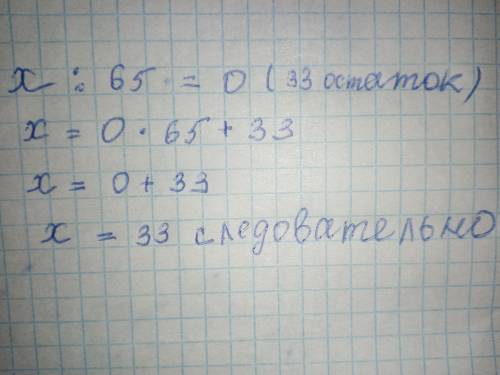 x : 65 = 0 (33 остаток)
x = 0 · 65 + 33
x = 0 + 33
x = 33 следовательно